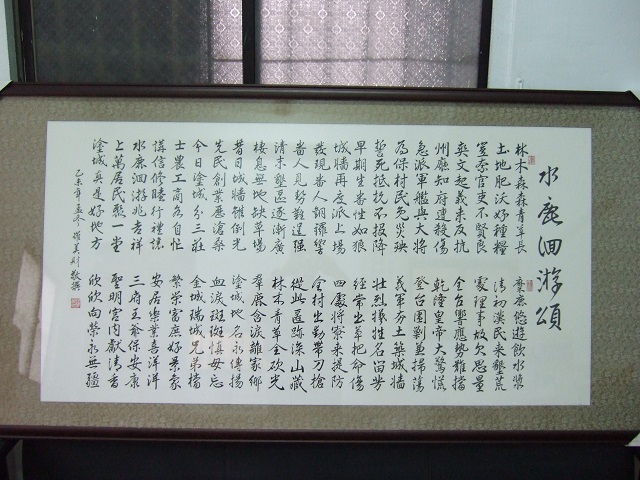 水鹿洄游頌
林木森森青草長 麋鹿悠遊飲水漿
土地肥沃好種糧 清初漢民來墾荒
官吏不賢良 處理事故欠思量
爽文起義來反抗 全台響應勢難擋
州廳知府遭殺傷 乾隆皇帝大驚慌
急派軍艦與大將 登台圍剿並掃蕩
為保村民免災殃 義軍夯土築城牆
誓死抵抗不投降 壯烈犧牲名留芳
早期生番性如狼 經常出草把命傷
城牆再度派上場 四處將寮來提防
發現番人銅鑼響 全村出動帶刀槍
番人見勢難逞強 從此匿跡深山藏
清末墾區逐漸廣 林木青草全砍光
棲息無地缺草場 群鹿含淚離家鄉
昔日城牆雖倒光 塗城地名永傳揚
先民創業歷滄桑 血淚斑斑慎毋忘
今日塗城分三莊 金城瑞城兄弟檔
士農工商各自忙 繁榮富庶好景象
講信修睦行禮讓 安居樂業喜洋洋
水鹿洄游兆吉祥 三府王爺保安康
上萬居民聚一堂 聖明宮內獻清香
塗城真是好地方 欣欣向榮永無疆
乙未年孟冬 敬撰